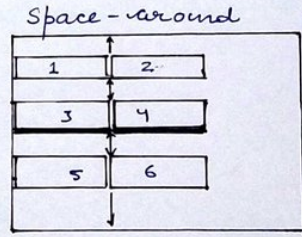 Space-around
1 2
3 4
5 6